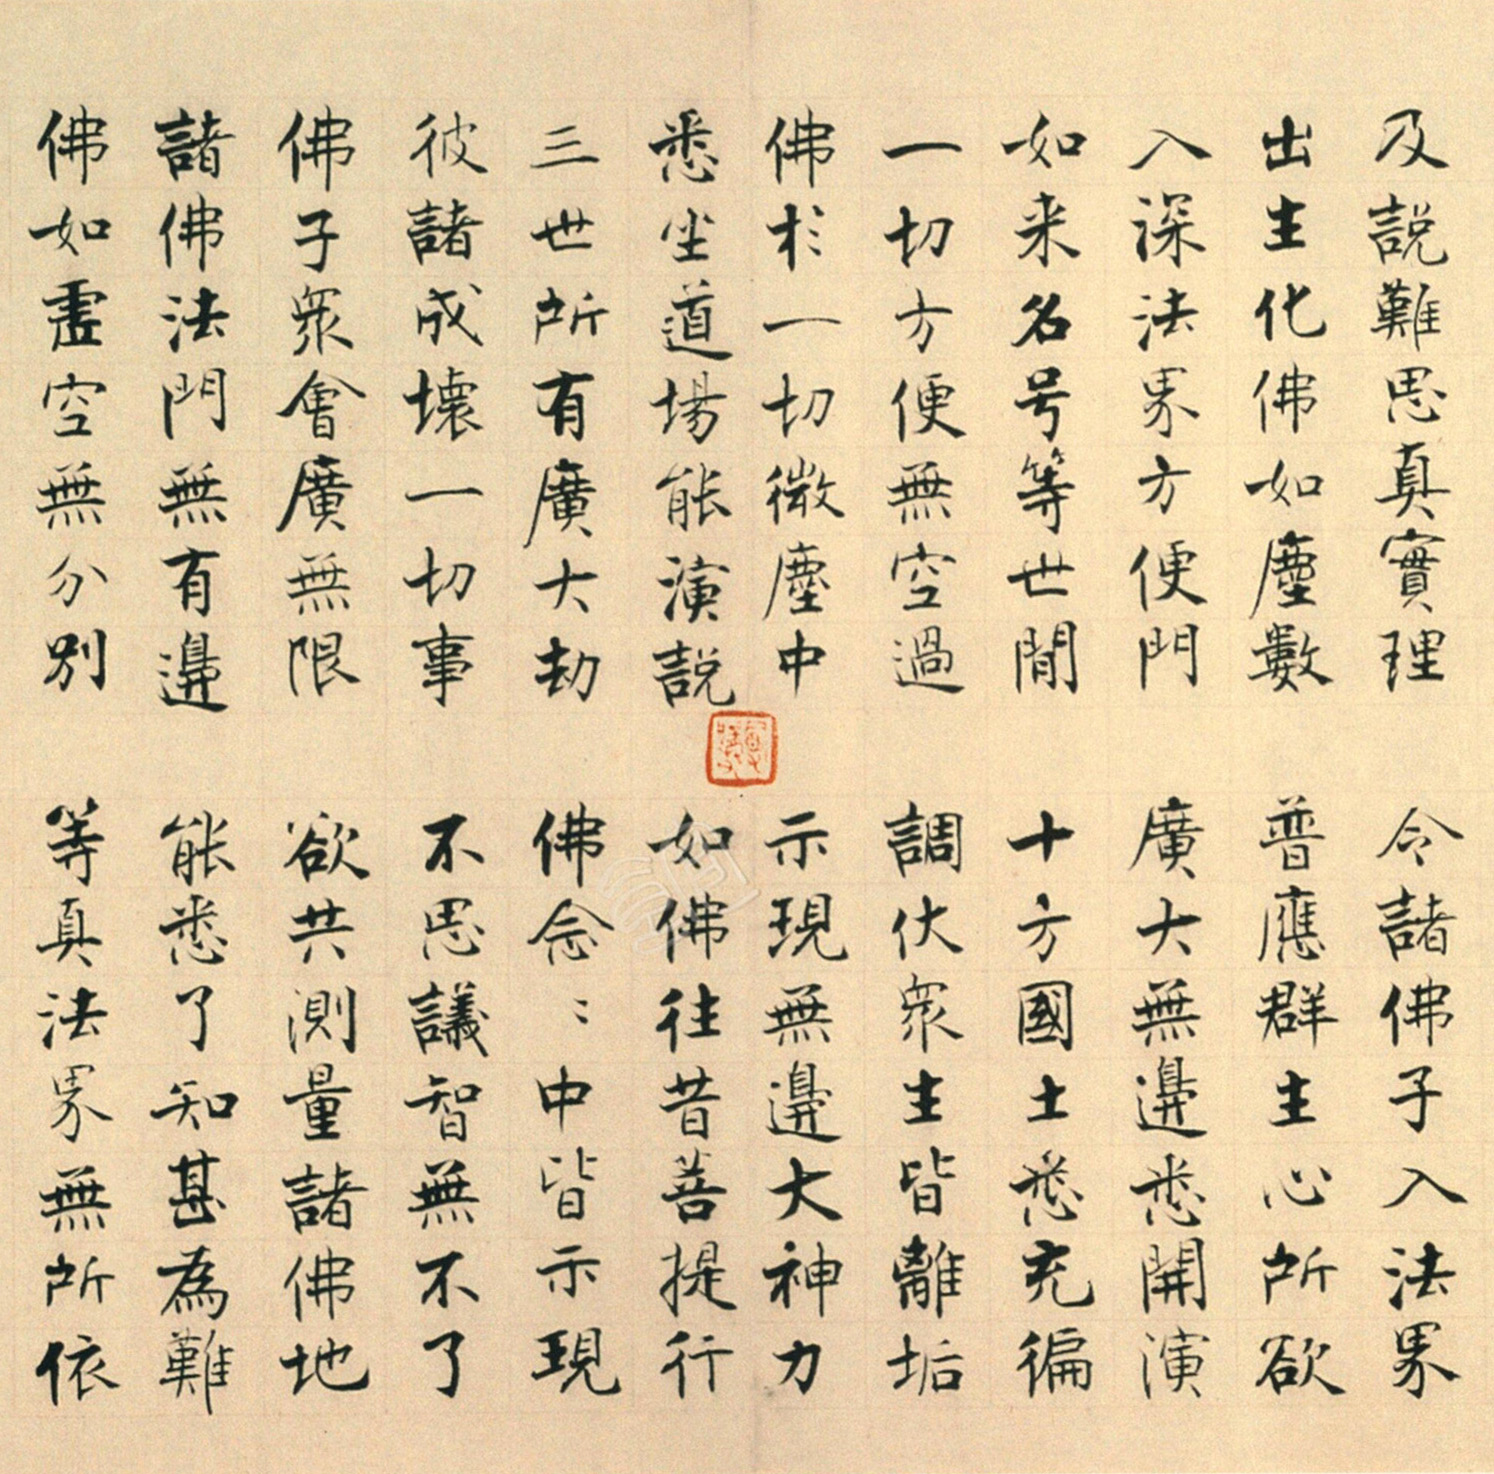 及說難思真實理　令諸佛子入法界
出生化佛如塵數　普應群生心所欲
入深法界方便門　廣大無邊悉開演
如来名号等世間　十方國土悉充徧
一切方便無空過　調伏衆生皆離垢
佛於一切微塵中　示現無邊大神力
悉坐道場能演説　如佛往昔菩提行
三世所有廣大劫　佛念〻中皆示現
彼諸成壞一切事　不思議智無不了
佛子衆會廣無限　欲共測量諸佛地
諸佛法門無有邊　能悉了知甚為難
佛如虛空無分別　等真法界無所依